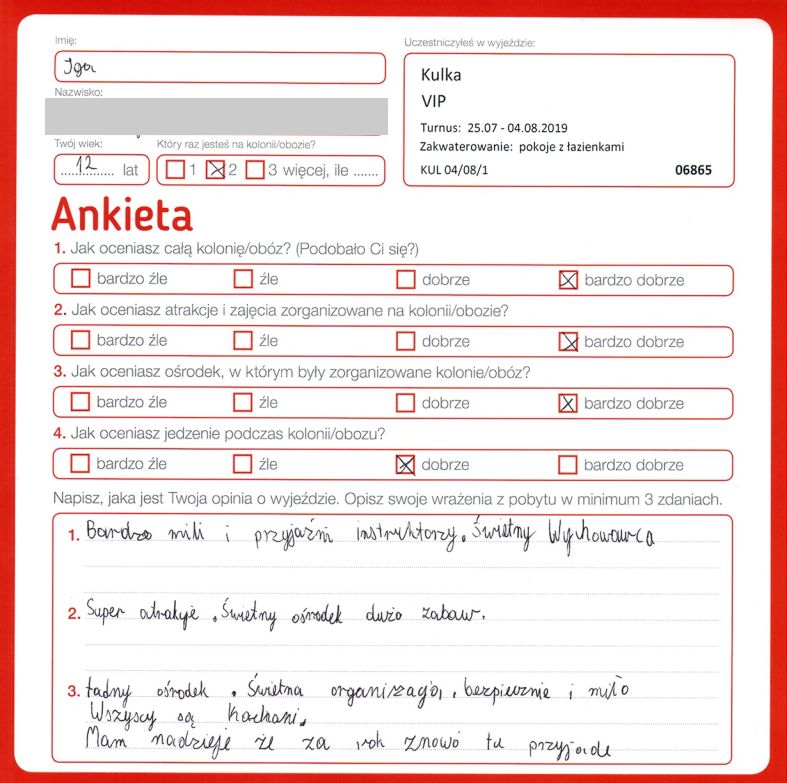 Imię:
Igor
Nazwisko:
Twój wiek:
12 lat
Który raz jesteś na kolonii/obozie?
1 2 3 więcej, ile .......
Uczestniczyłeś w wyjeździe:
Kulka
VIP
Turnus: 25.07 - 04.08.2019
Zakwaterowanie: pokoje z łazienkami
KUL 04/08/1 06865
Ankieta
1. Jak oceniasz całą kolonię/obóz? (Podobało Ci się?)
bardzo źle źle dobrze bardzo dobrze
2. Jak oceniasz atrakcje i zajęcia zorganizowane na kolonii/obozie?
bardzo źle źle dobrze bardzo dobrze
3. Jak oceniasz ośrodek, w którym były zorganizowane kolonie/obóz?
bardzo źle źle dobrze bardzo dobrze
4. Jak oceniasz jedzenie podczas kolonii/obozu?
bardzo źle źle dobrze bardzo dobrze
Napisz, jaka jest Twoja opinia o wyjeździe. Opisz swoje wrażenia z pobytu w minimum 3 zdaniach.
1. Bardzo mili i przyjaźni instruktorzy. Świetny Wychowawca
2. Super atrakcje. Świetny ośrodek dużo zabaw.
3. Ładny ośrodek. Świetna bezpiecznie i miło
Wszyscy są kochani.
Mam nadzieje że za rok znowó tu przyjade